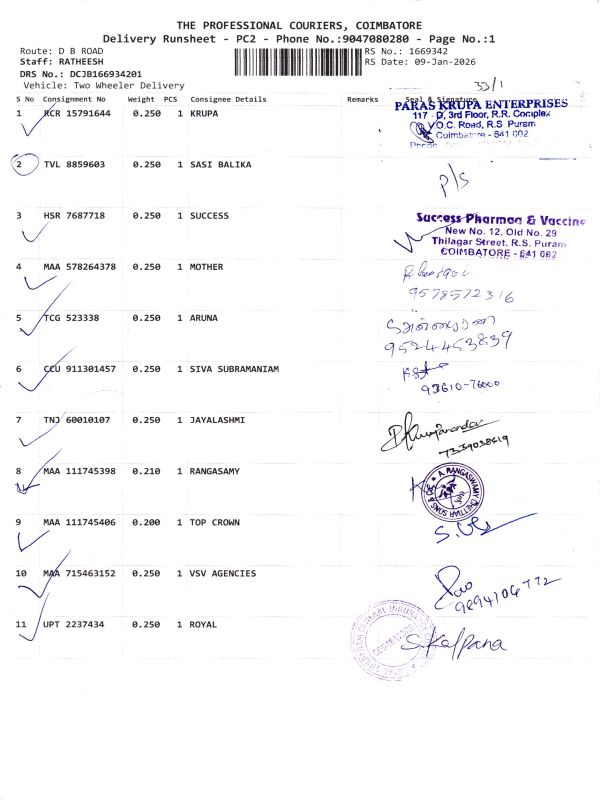 THE PROFESSIONAL COURIERS, COIMBATORE
Delivery Runsheet - PC2 - Phone No.:9047080280 - Page No.:1
Route: D B ROAD
RS No.: 1669342
Staff: RATHEESH
RS Date: 09-Jan-2026
DRS No.: DCJB166934201
Vehicle: Two Wheeler Delivery
33/1
S No Consignment No Weight PCS Consignee Details Remarks Seal & Signature
1 RCR 15791644 0.250 1 KRUPA
PARAS KRUPA ENTERPRISES
117 - D, 3rd Floor, R.R. Complex
V.O.C. Road, R.S. Puram
Coimbatore - 641 002
Phone
2 TVL 8859603 0.250 1 SASI BALIKA
P/S
3 HSR 7687718 0.250 1 SUCCESS
Success Pharmaa & Vaccine
New No. 12, Old No. 29
Thilagar Street, R.S. Puram
COIMBATORE - 641 002
4 MAA 578264378 0.250 1 MOTHER
9578572316
5 TCG 523338 0.250 1 ARUNA
9524453839
6 CCU 911301457 0.250 1 SIVA SUBRAMANIAM
93610-76000
7 TNJ 60010107 0.250 1 JAYALASHMI
7339038619
8 MAA 111745398 0.210 1 RANGASAMY
A. RANGASWAMY CHETTIAR SONS & CO
9 MAA 111745406 0.200 1 TOP CROWN
10 MAA 715463152 0.250 1 VSV AGENCIES
9894106772
11 UPT 2237434 0.250 1 ROYAL
S. Kalpana